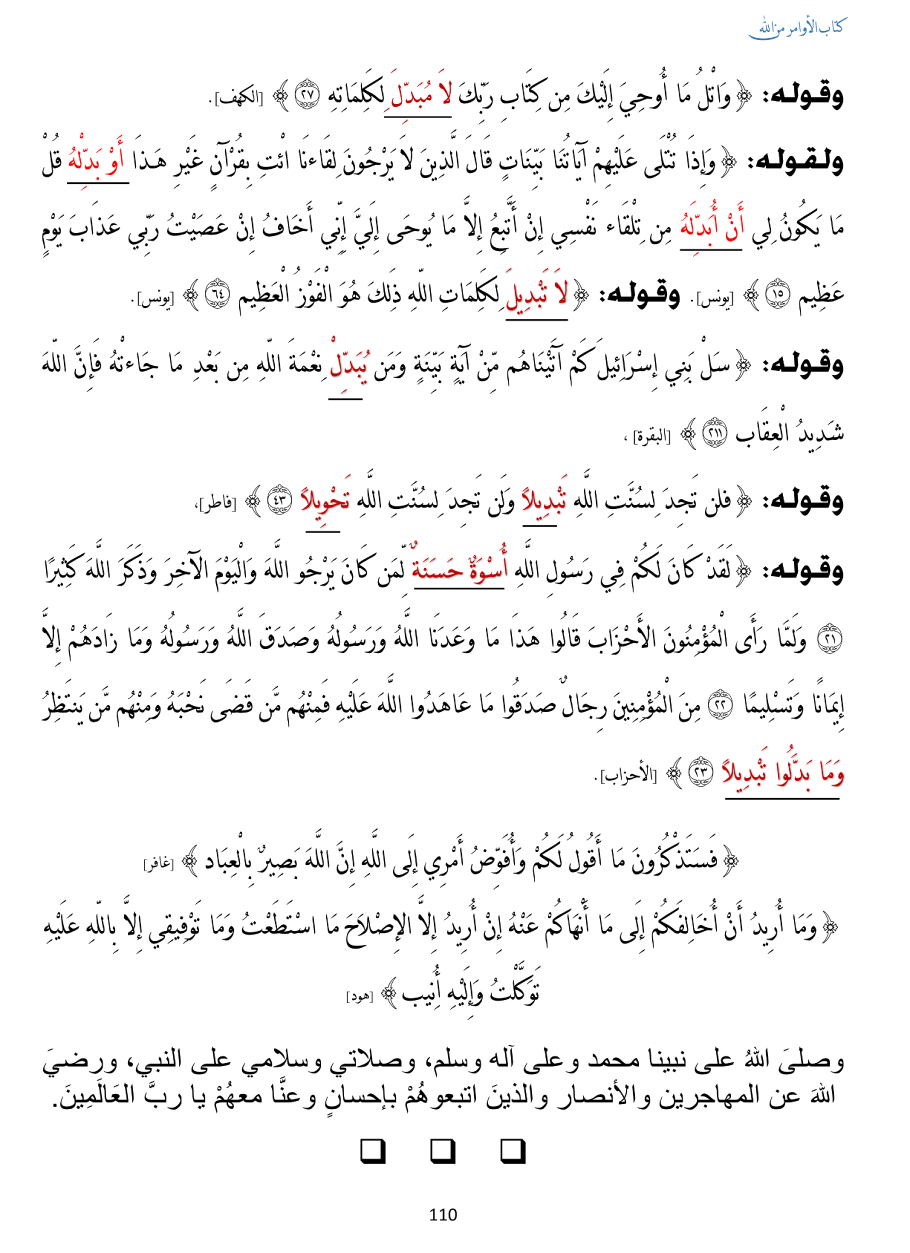 كتاب الأوامر من الله
وقوله: ﴿ وَاتْلُ مَا أُوحِيَ إِلَيْكَ مِن كِتَابِ رَبِّكَ لاَ مُبَدِّلَ لِكَلِمَاتِهِ ﴿٢٧﴾ ﴾ [الكهف].
ولقوله: ﴿ وَإِذَا تُتْلَى عَلَيْهِمْ آيَاتُنَا بَيِّنَاتٍ قَالَ الَّذِينَ لاَ يَرْجُونَ لِقَاءنَا ائْتِ بِقُرْآنٍ غَيْرِ هَـذَا أَوْ بَدِّلْهُ قُلْ
مَا يَكُونُ لِي أَنْ أُبَدِّلَهُ مِن تِلْقَاء نَفْسِي إِنْ أَتَّبِعُ إِلاَّ مَا يُوحَى إِلَيَّ إِنِّي أَخَافُ إِنْ عَصَيْتُ رَبِّي عَذَابَ يَوْمٍ
عَظِيم ﴿١٥﴾ ﴾ [يونس]. وقوله: ﴿ لاَ تَبْدِيلَ لِكَلِمَاتِ اللهِ ذَلِكَ هُوَ الْفَوْزُ الْعَظِيم ﴿٦٤﴾ ﴾ [يونس].
وقوله: ﴿ سَلْ بَنِي إِسْرَائِيلَ كَمْ آتَيْنَاهُم مِّنْ آيَةٍ بَيِّنَةٍ وَمَن يُبَدِّلْ نِعْمَةَ اللهِ مِن بَعْدِ مَا جَاءتْهُ فَإِنَّ اللهَ
شَدِيدُ الْعِقَاب ﴿٢١١﴾ ﴾ [البقرة] ،
وقوله: ﴿ فلن تَجِدَ لِسُنَّتِ اللَّهِ تَبْدِيلاً وَلَن تَجِدَ لِسُنَّتِ اللَّهِ تَحْوِيلاً ﴿٤٣﴾ ﴾ [فاطر]،
وقوله: ﴿ لَقَدْ كَانَ لَكُمْ فِي رَسُولِ اللَّهِ أُسْوَةٌ حَسَنَةٌ لِّمَن كَانَ يَرْجُو اللَّهَ وَالْيَوْمَ الآخِرَ وَذَكَرَ اللَّهَ كَثِيرًا
﴿٢١﴾ وَلَمَّا رَأَى الْمُؤْمِنُونَ الأَحْزَابَ قَالُوا هَذَا مَا وَعَدَنَا اللَّهُ وَرَسُولُهُ وَصَدَقَ اللَّهُ وَرَسُولُهُ وَمَا زَادَهُمْ إِلاَّ
إِيمَانًا وَتَسْلِيمًا ﴿٢٢﴾ مِنَ الْمُؤْمِنِينَ رِجَالٌ صَدَقُوا مَا عَاهَدُوا اللَّهَ عَلَيْهِ فَمِنْهُم مَّن قَضَى نَحْبَهُ وَمِنْهُم مَّن يَنتَظِرُ
وَمَا بَدَّلُوا تَبْدِيلاً ﴿٢٣﴾ ﴾ [الأحزاب].
﴿ فَسَتَذْكُرُونَ مَا أَقُولُ لَكُمْ وَأُفَوِّضُ أَمْرِي إِلَى اللَّهِ إِنَّ اللَّهَ بَصِيرٌ بِالْعِبَاد ﴾ [غافر]
﴿ وَمَا أُرِيدُ أَنْ أُخَالِفَكُمْ إِلَى مَا أَنْهَاكُمْ عَنْهُ إِنْ أُرِيدُ إِلاَّ الإِصْلاَحَ مَا اسْتَطَعْتُ وَمَا تَوْفِيقِي إِلاَّ بِاللهِ عَلَيْهِ
تَوَكَّلْتُ وَإِلَيْهِ أُنِيب ﴾ [هود]
وصلىَ اللهُ على نبينا محمد وعلى آله وسلم، وصلاتي وسلامي على النبي، ورضيَ
اللهَ عن المهاجرين والأنصار والذينَ اتبعوهُمْ بإحسانٍ وعنَّا معهُمْ يا ربَّ العَالَمِينَ.
❑ ❑ ❑
110